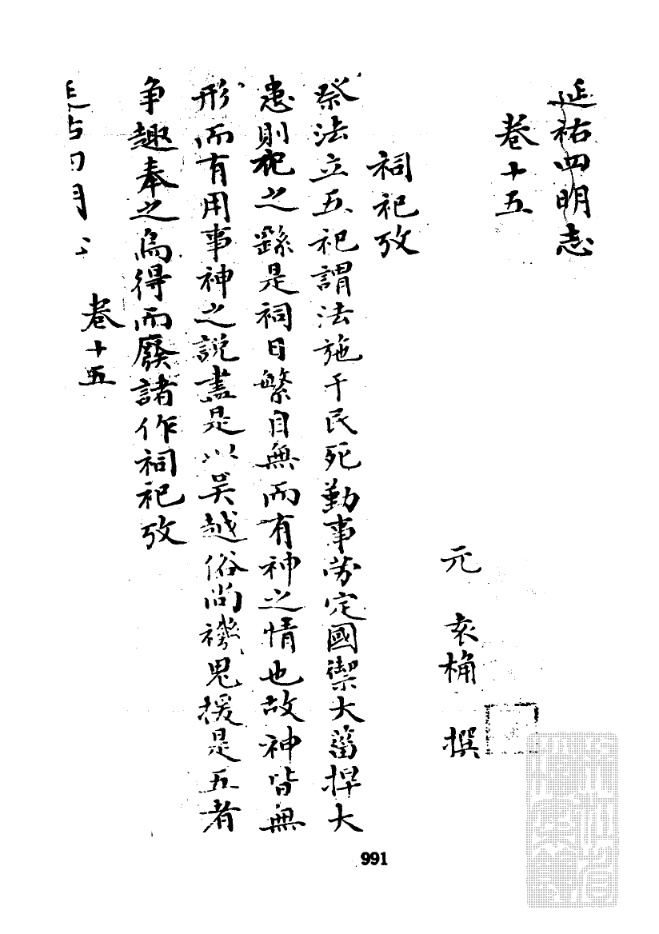 延祐四明志
卷十五
元 袁桷 撰
祠祀攷
祭法立五祀謂法施于民死勤事勞定國禦大菑捍大
患則祀之繇是祠日繁自無而有神之情也故神皆無
形而有用事神之説盡是以吳越俗尚禨鬼援是五者
争趣奉之烏得而廢諸作祠祀攷
延祐四明
卷十五
991